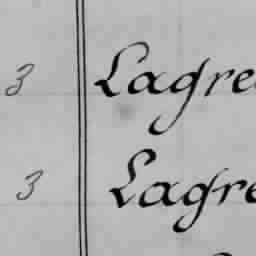 3 Lagre
3 Lagre